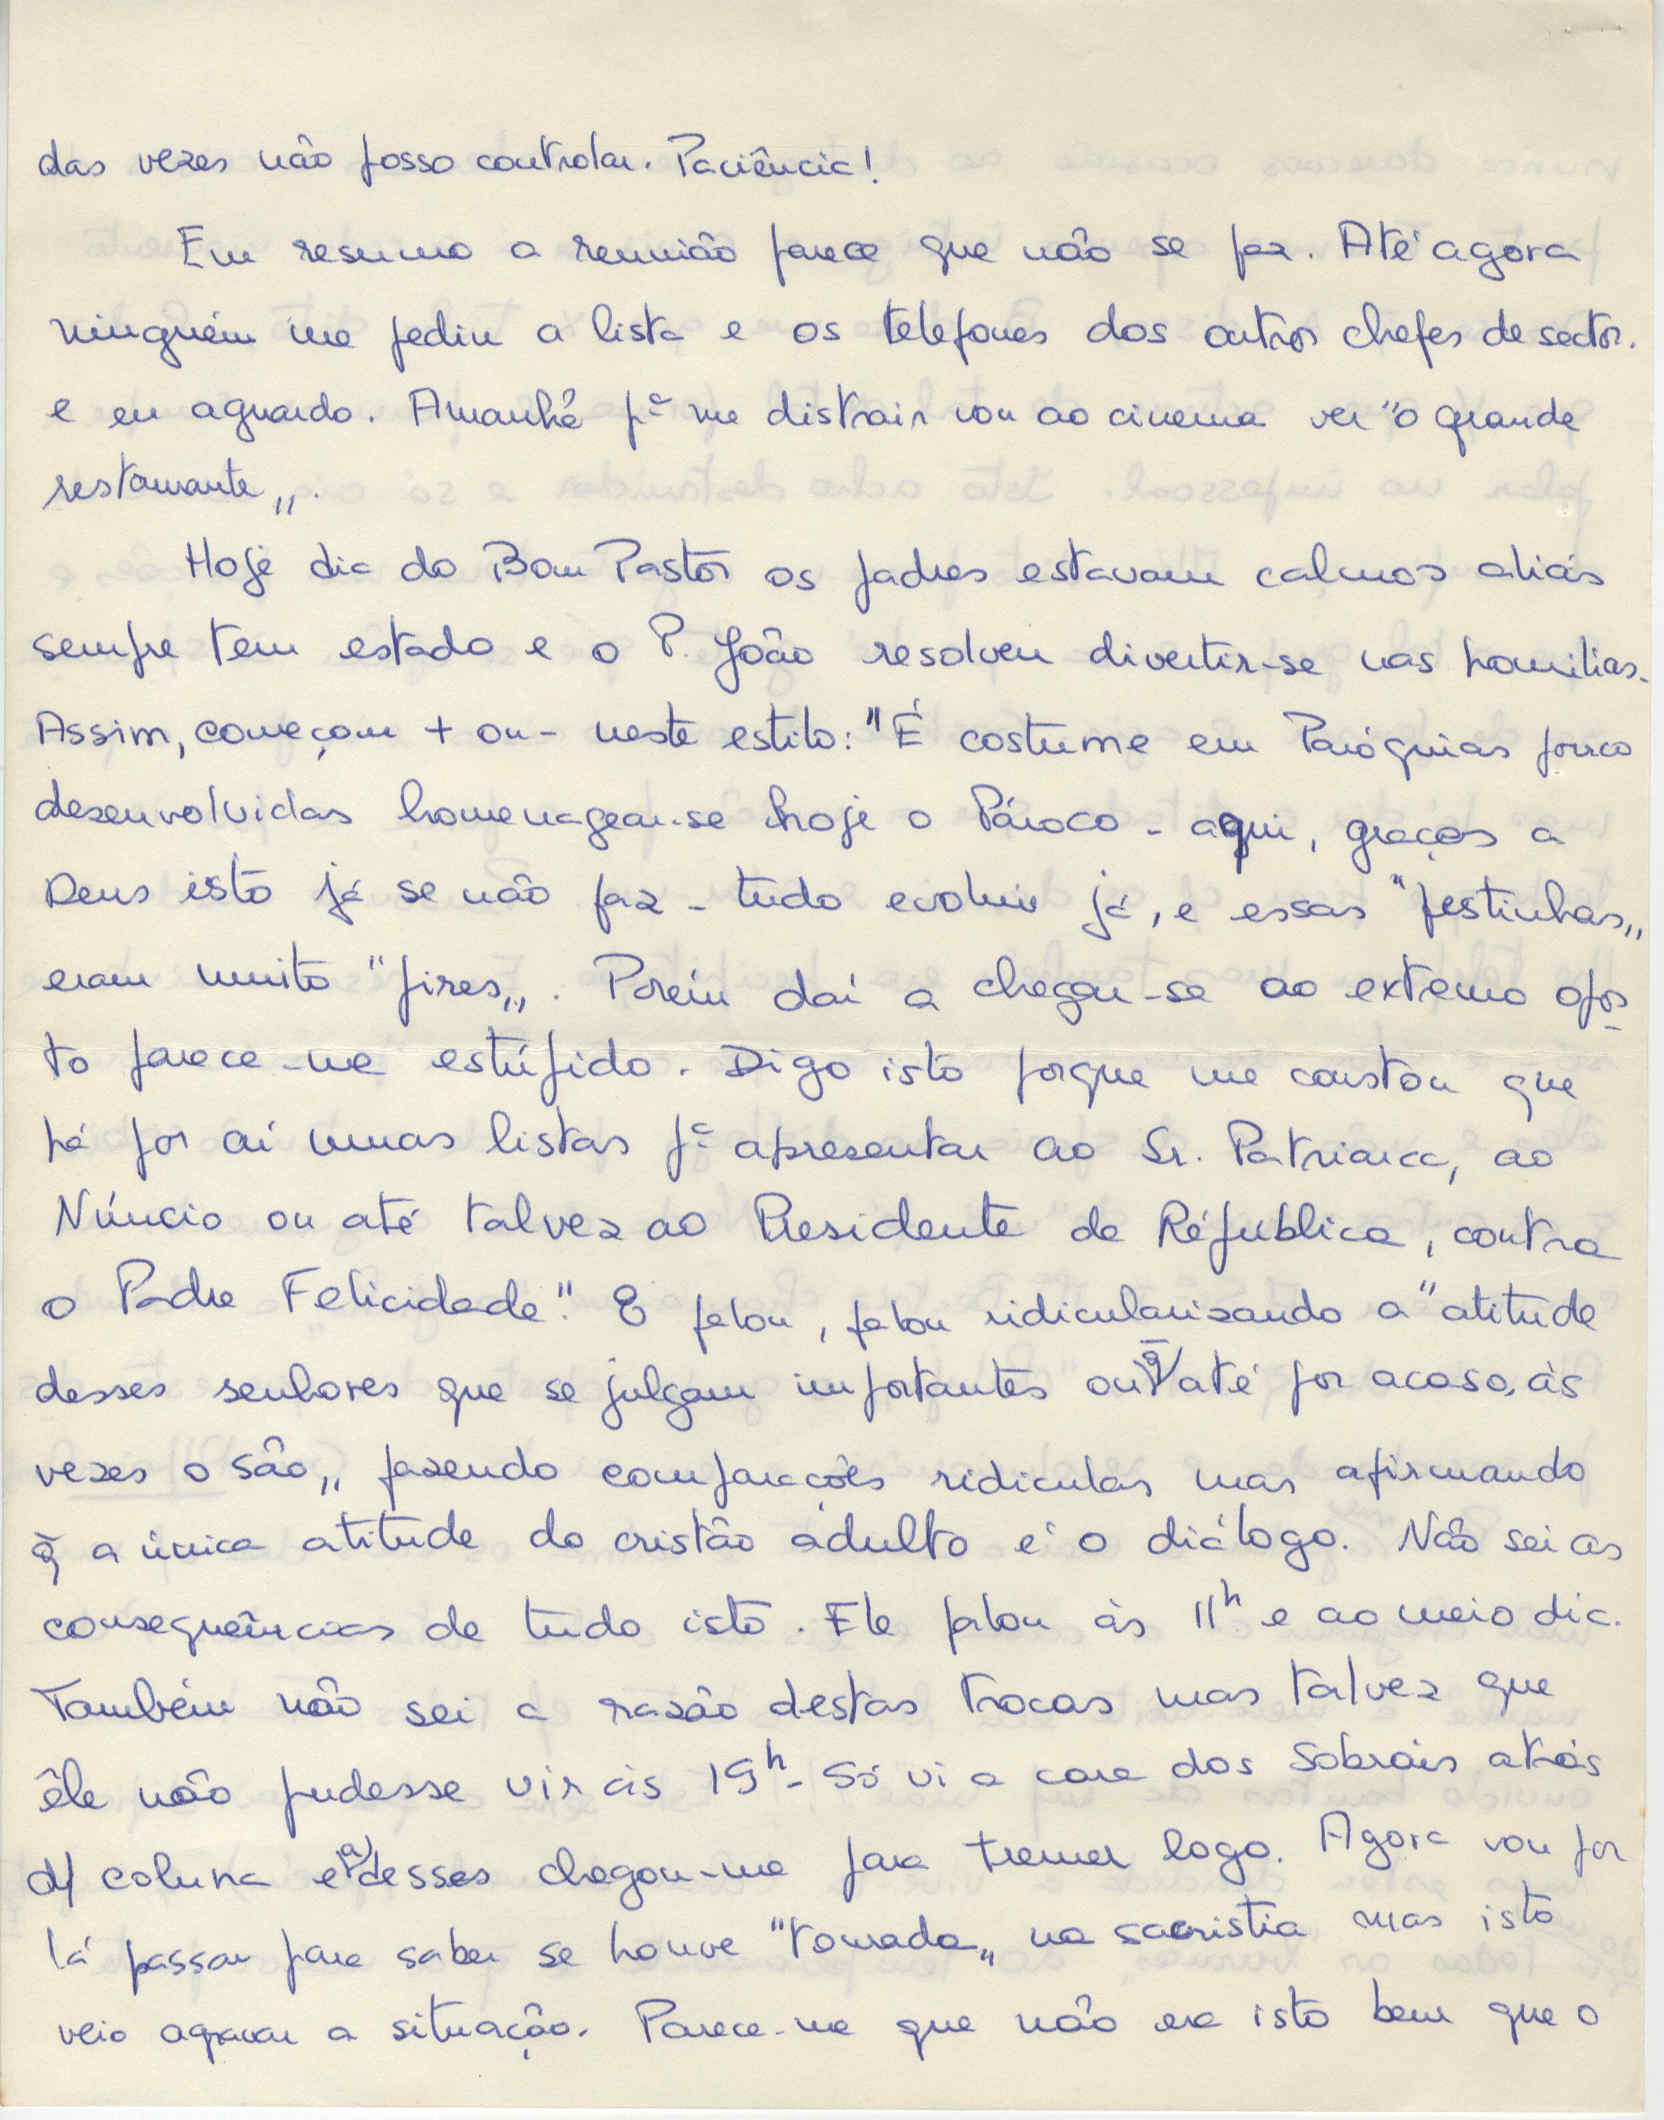 das vezes não posso controlar. Paciência!
Em resumo a reunião parece que não se faz. Até agora
ninguém me pediu a lista e os telefones dos outros chefes de sector.
e eu aguardo. Amanhã pª me distrair vou ao cinema ver "o grande
restaurante".
Hoje dia do Bom Pastor os padres estavam calmos aliás
sempre tem estado e o P. João resolveu divertir-se nas homilias.
Assim, começou + ou - neste estilo: "É costume em Paróquias pouco
desenvolvidas homenagear-se hoje o Pároco - aqui, graças a
Deus isto já se não faz - tudo evoluiu já, e essas "festinhas"
eram muito "pires". Porém daí a chegar-se ao extremo opos
to parece-me estúpido. Digo isto porque me constou que
há por aí umas listas pª apresentar ao Sr. Patriarca, ao
Núncio ou até talvez ao Presidente da Répública, contra
o Padre Felicidade". E falou, falou ridicularizando a "atitude
desses senhores que se julgam importantes ou q̄ até por acaso, às
vezes o são" fazendo comparações ridiculas mas afirmando
q̃ a única atitude do cristão adulto é o diálogo. Não sei as
consequências de tudo isto. Ele falou às 11h e ao meio dia.
Também não sei a razão destas trocas mas talvez que
êle não pudesse vir às 19h - Só vi a cara dos Sobrais atrás
d/ coluna e a desses chegou-me para tremer logo. Agora vou por
lá passar para saber se houve "tourada" na sacristia mas isto
veio agravar a situação. Parece-me que não era isto bem que o